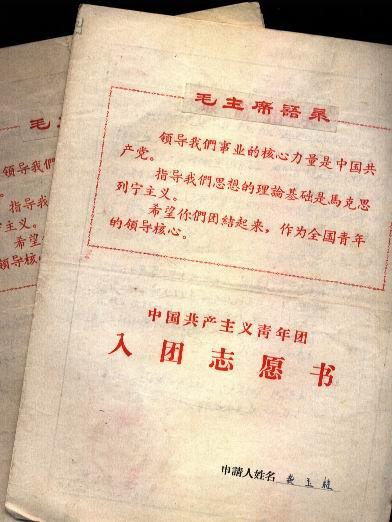 毛主席語录
領导我們事业的核心力量是中国共
产党。
指导我們思想的理論基础是馬克思
列宁主义。
希望你們团結起来，作为全国青年
的領导核心。
中国共产主义青年团
入团志愿书
申請人姓名
毛
領导我們
指导我
宁主义。
希望
領导核心